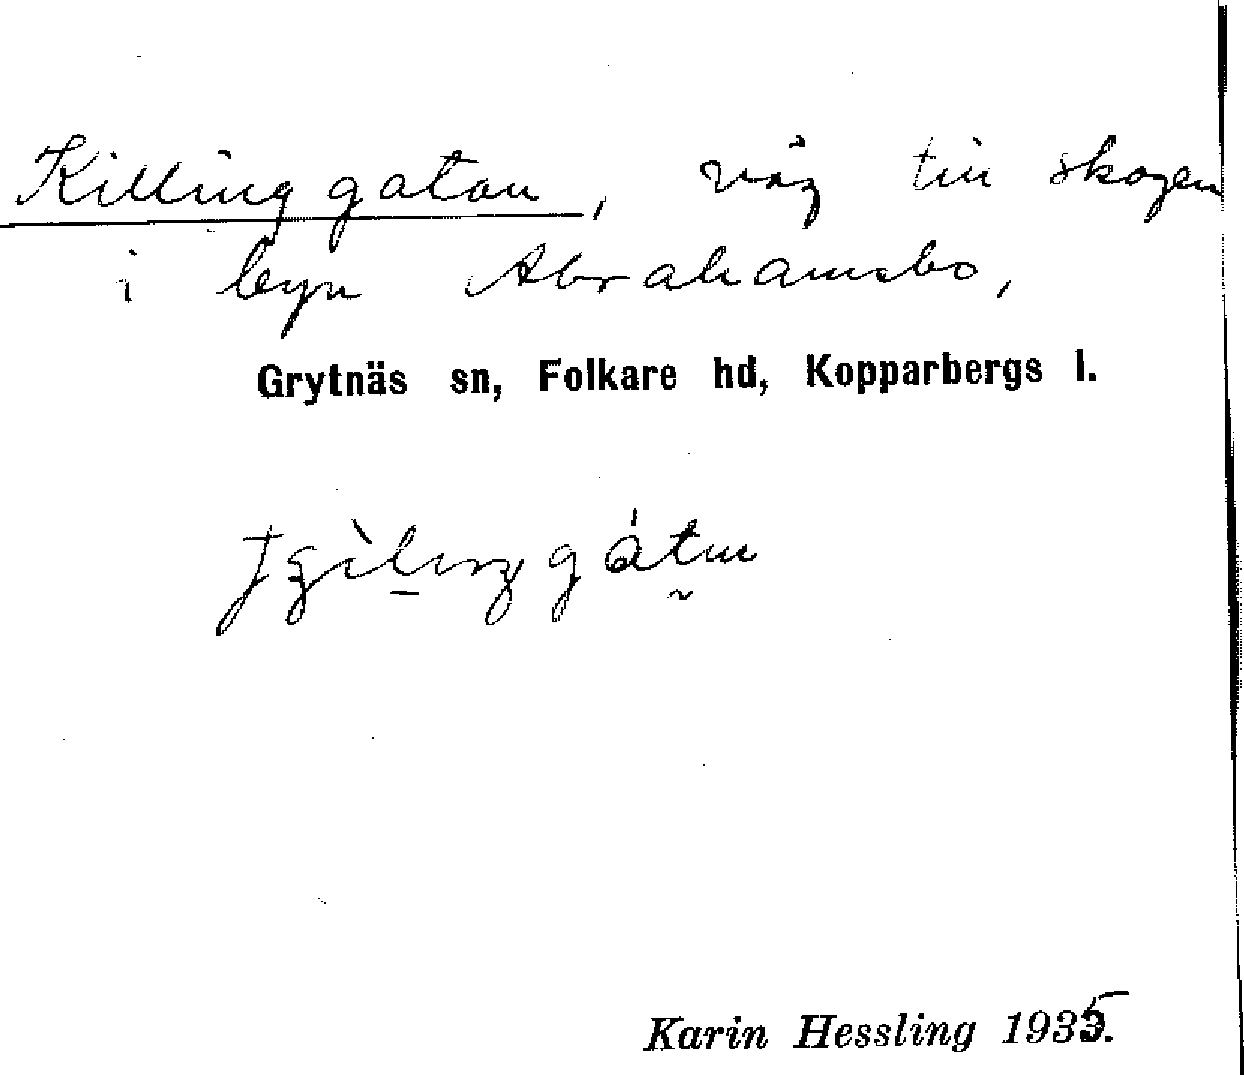 Killinggatan, väg till skogen
i byn Abrahamsbo,
Grytnäs sn, Folkare hd, Kopparbergs l.
Karin Hessling 1935.